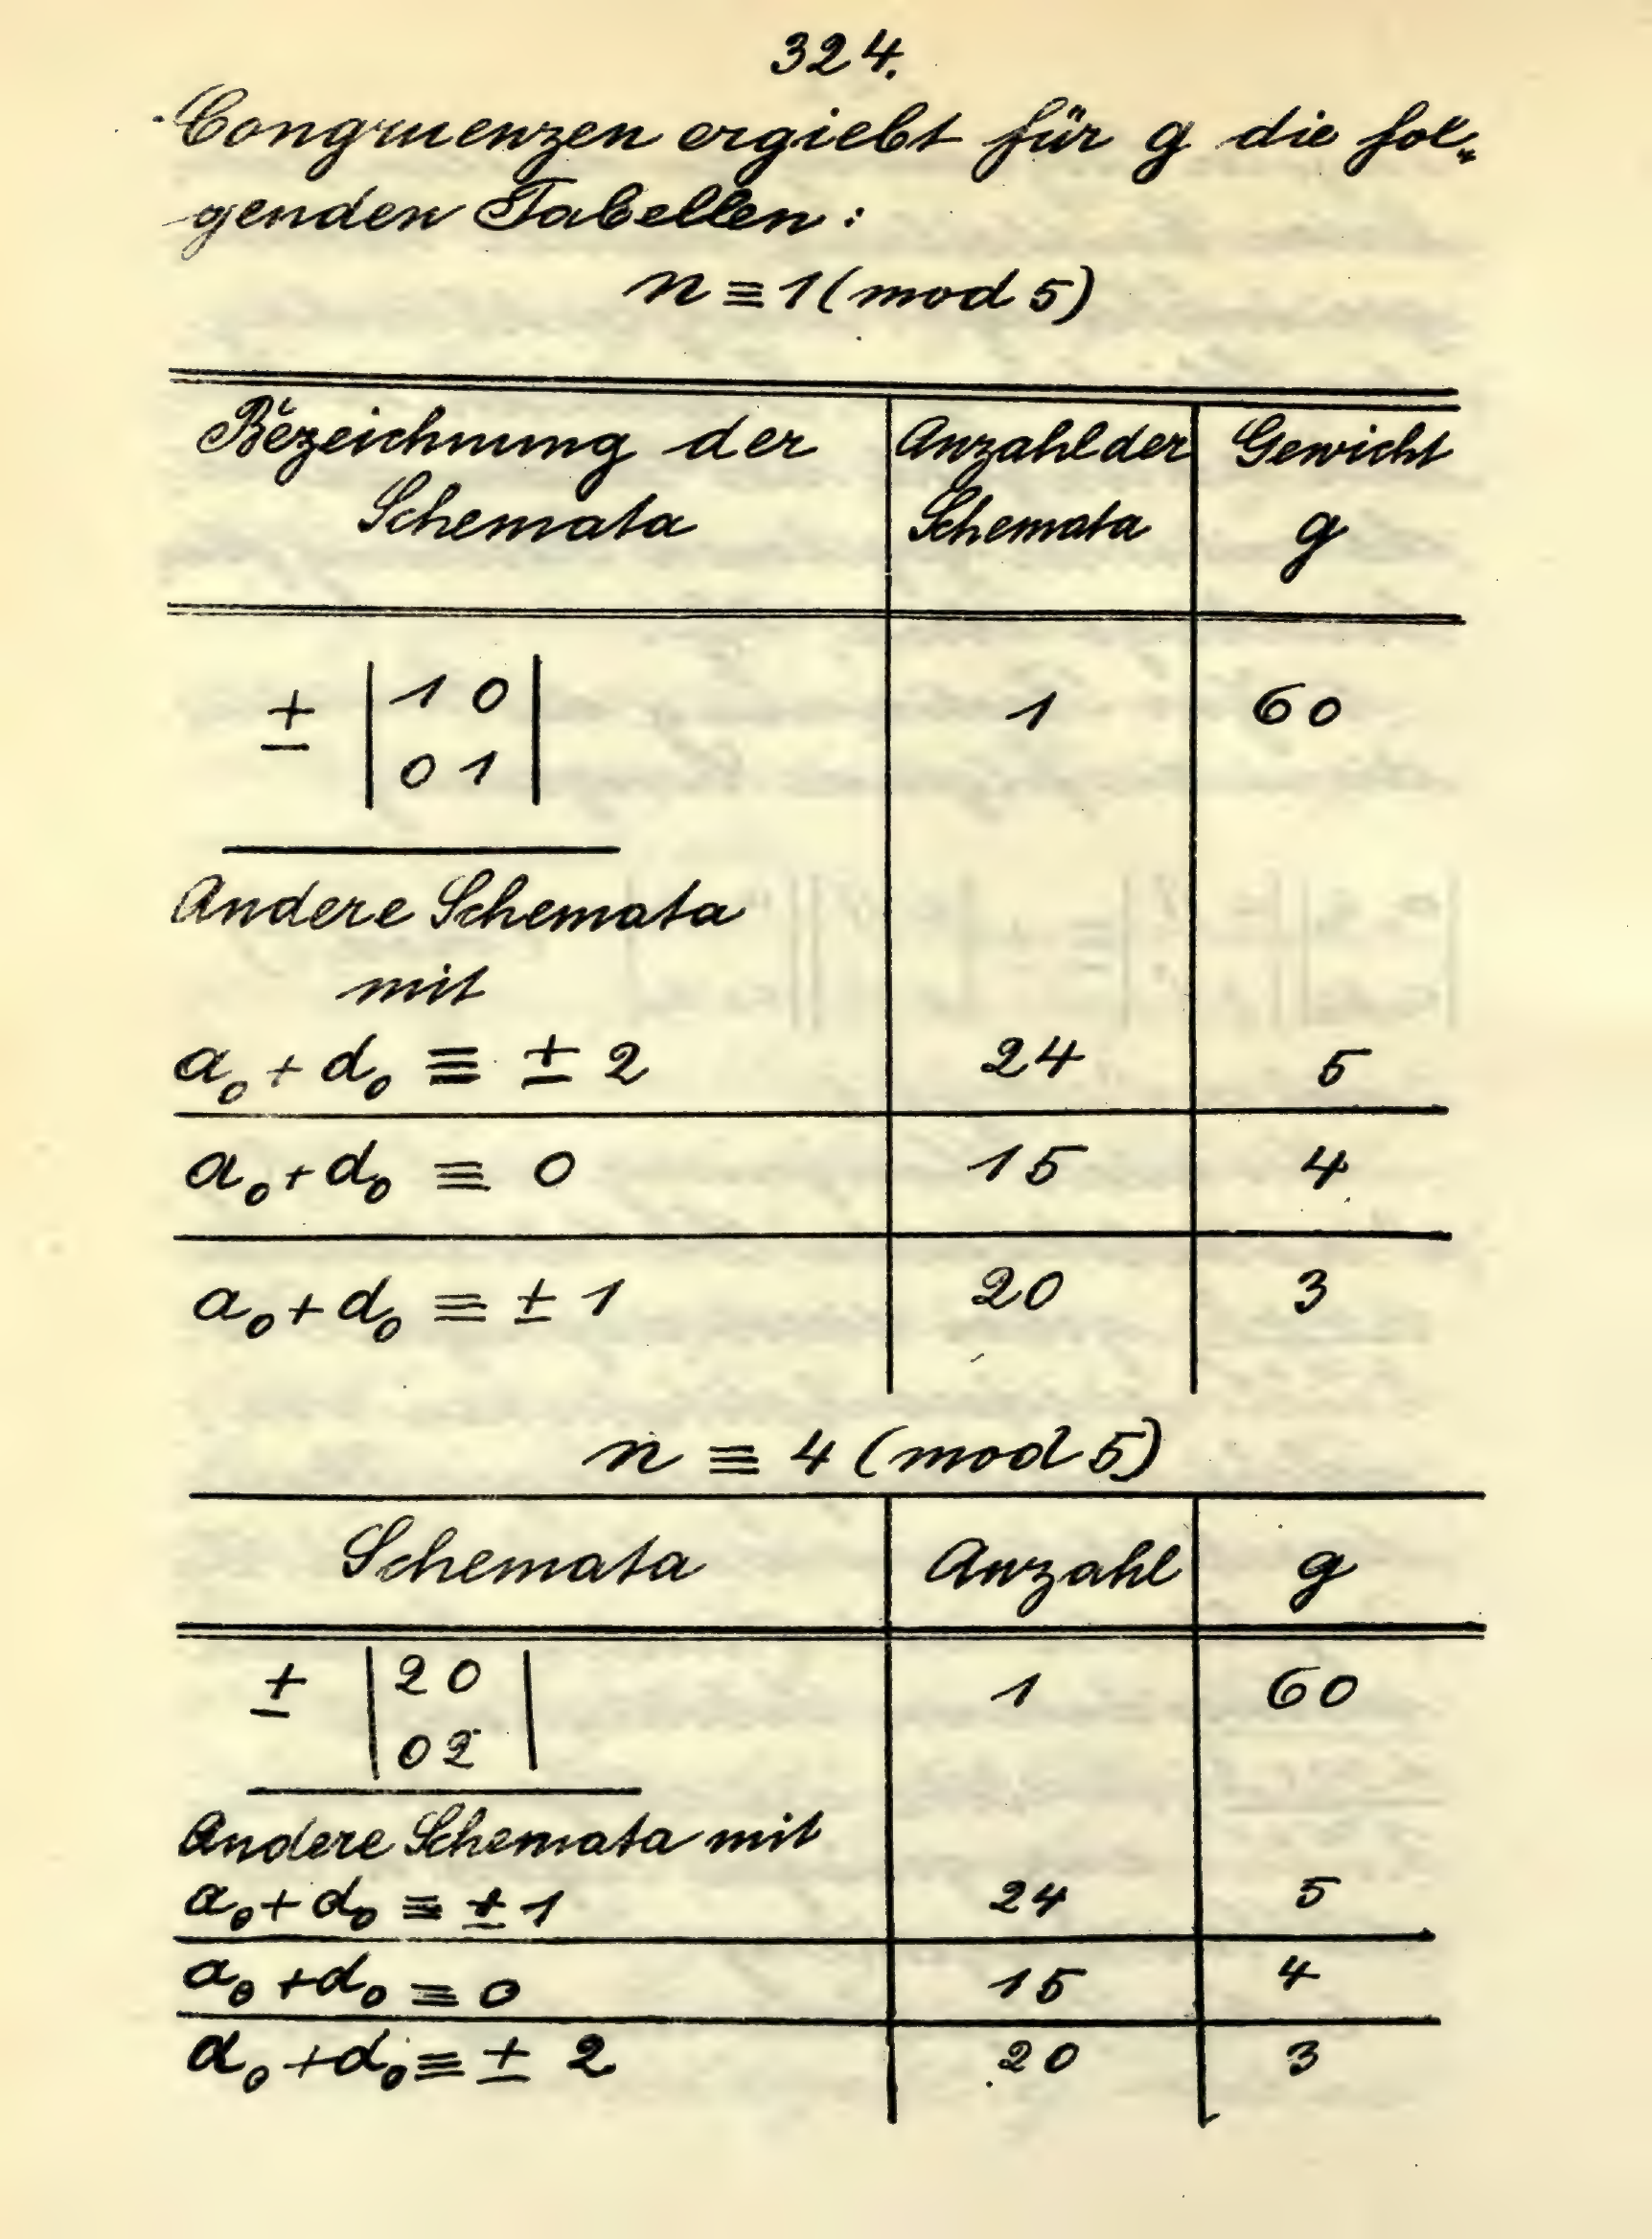 324.
Congruenzen ergiebt für g die fol„
genden Tabellen:
n ≡ 1 (mod 5)
Bezeichnung der Anzahl der Gewicht
Schemata Schemata g
± | 1 0 | 1 60
| 0 1 |
Andere Schemata
mit
a₀ + d₀ ≡ ± 2 24 5
a₀ + d₀ ≡ 0 15 4
a₀ + d₀ ≡ ± 1 20 3
n ≡ 4 (mod 5)
Schemata Anzahl g
± | 2 0 | 1 60
| 0 2 |
Andere Schemata mit
a₀ + d₀ ≡ ± 1 24 5
a₀ + d₀ ≡ 0 15 4
a₀ + d₀ ≡ ± 2 20 3